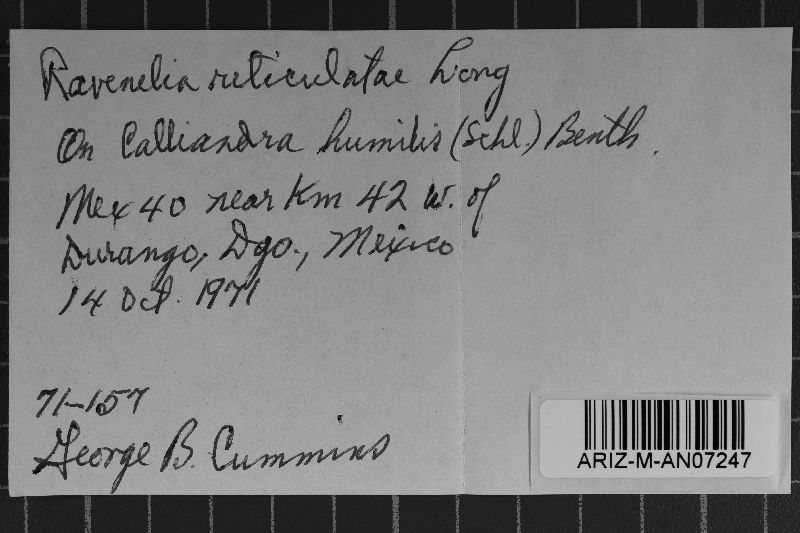 Ravenelia reticulatae Long
On Calliandra humilis (Schl.) Benth.
Mex 40 near Km 42 W. of
Durango, Dgo., Mexico
14 Oct. 1971
71-157
George B. Cummins
ARIZ-M-AN07247